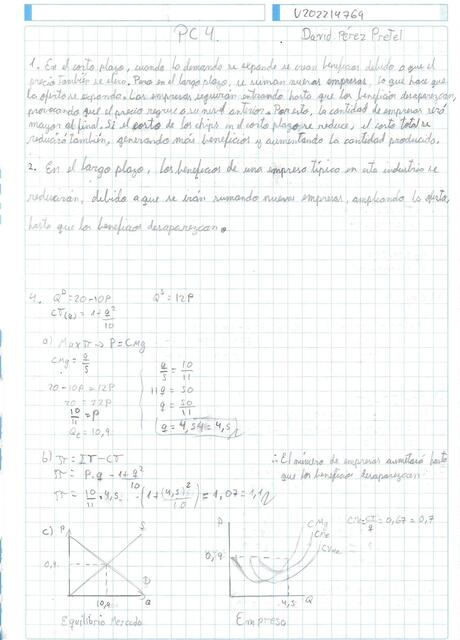 U202214769
PC 4.
David Pérez Pretel
1. En el corto plazo, cuando la demanda se expande se crean beneficios debido a que el
precio también se eleva. Pero en el largo plazo, se suman nuevas empresas, lo que hace que
la oferta se expanda. Las empresas seguirán entrando hasta que los beneficios desaparezcan,
provocando que el precio regrese a su nivel anterior. Por esto, la cantidad de empresas será
mayor al final. Si el costo de los chips en el corto plazo se reduce, el costo total se
reducirá también, generando más beneficios y aumentando la cantidad producida.
2. En el largo plazo, los beneficios de una empresa típica en esta industria se
reducirán, debido a que se irán sumando nuevas empresas, ampliando la oferta,
hasta que los beneficios desaparezcan.
4. Q^D = 20 - 10P Q^S = 12P
CT(q) = 1 + q²/10
a) Max π → P = CMg
CMg = q/5
20 - 10P = 12P
20 = 22P
10/11 = P
Qe = 10,9
q/5 = 10/11
11q = 50
q = 50/11
q = 4,54 = 4,5
b) π = IT - CT
π = P.q - 1 + q²/10
π = 10/11 . 4,5 - (1 + (4,5)²/10) = 1,07 = 1,1
∴ El número de empresas aumentará hasta
que los beneficios desaparezcan
c) P S
0,9
D
10,9 Q
Equilibrio Mercado
P CMg
CMe
CVMe
0,9
4,5 Q
Empresa
CMe = CT/q = 0,67 = 0,7